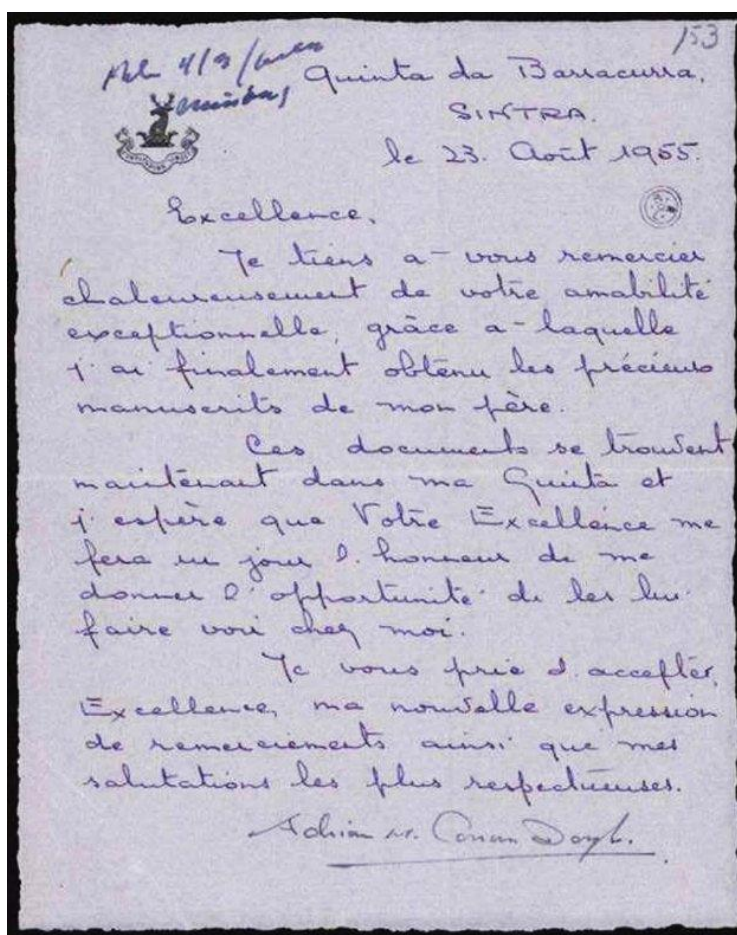 153
4/9/
Quinta da Barracurra,
SINTRA.
le 23. Août 1955.
Excellence,
Je tiens a- vous remercier
chaleureusement de votre amabilité
exceptionnelle, grâce a- laquelle
j'ai finalement obtenu les précieux
manuscrits de mon père.
Ces documents se trouvent
maintenant dans ma Quinta et
j'espère que Votre Excellence me
fera un jour l'honneur de me
donner l'opportunité de les lui
faire voir chez moi.
Je vous prie d'accepter,
Excellence, ma nouvelle expression
de remerciements ainsi que mes
salutations les plus respectueuses.
Adrian M. Conan Doyle.